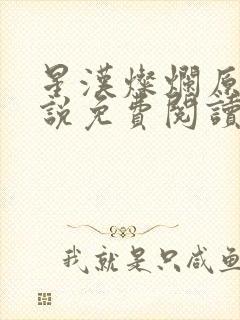 星漢燦爛原
說免費閱讀
我就是只咸鱼